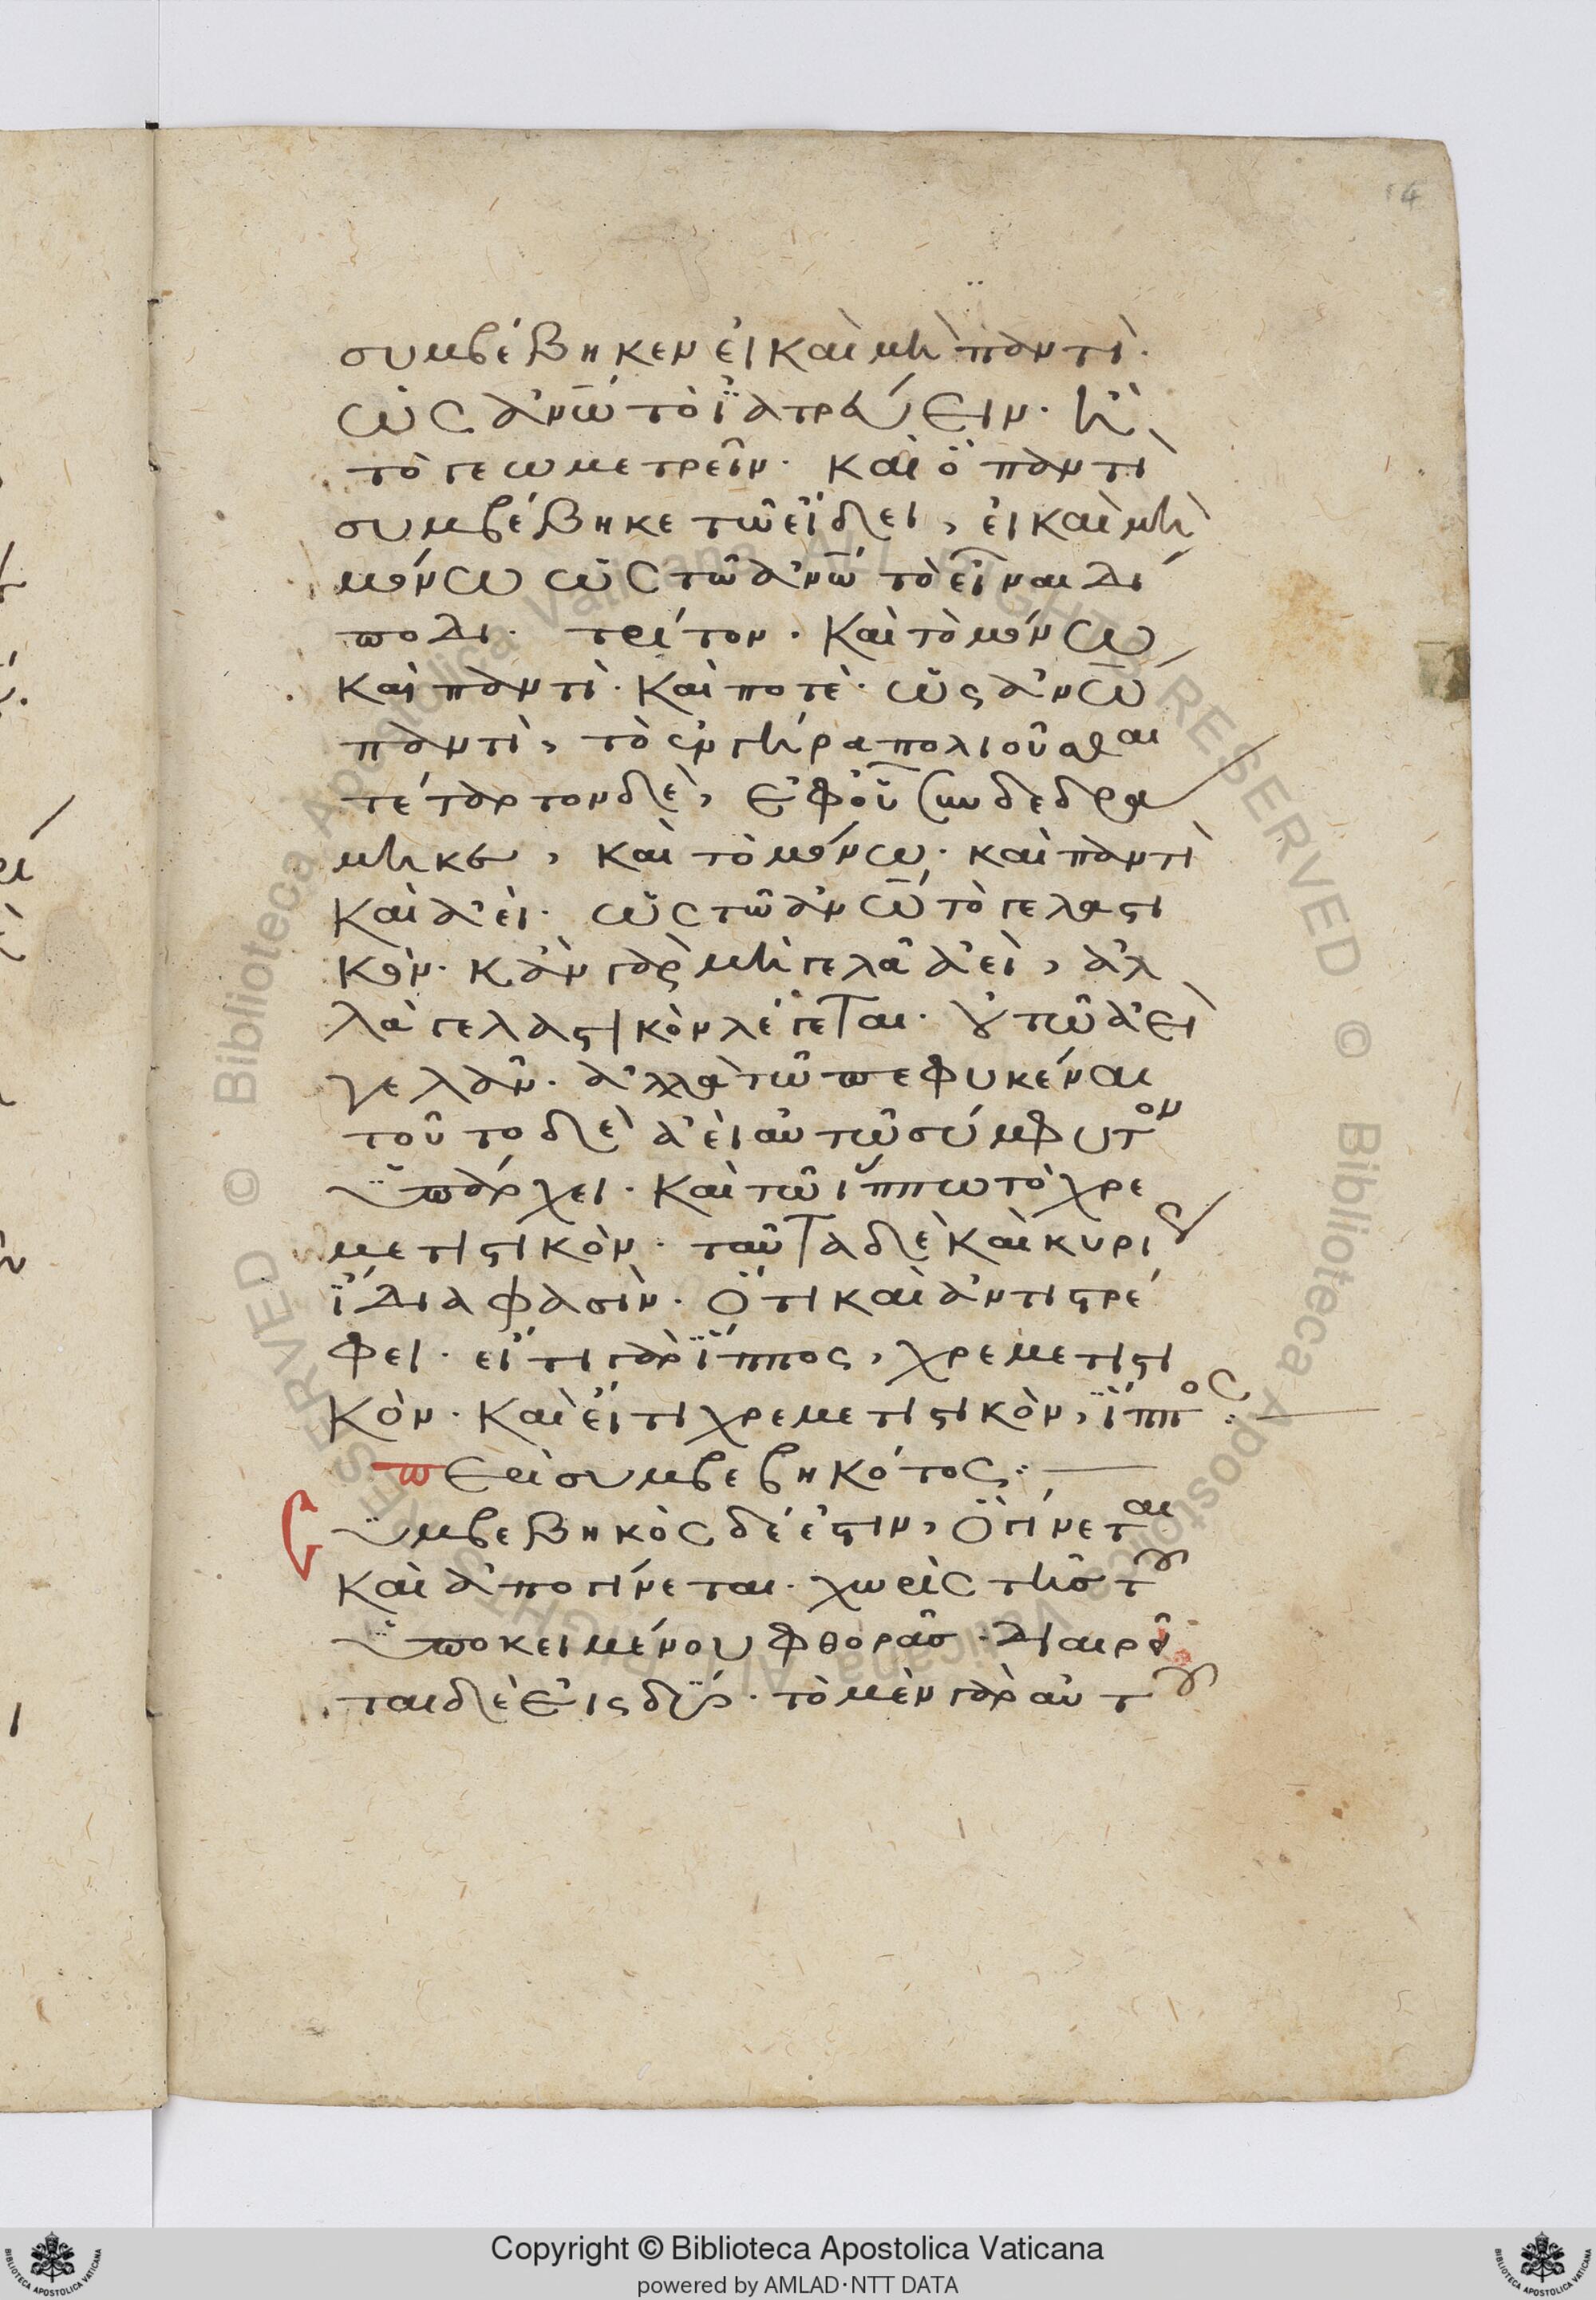 14
συμβέβηκεν εἰ καὶ μὴ παντὶ·
ὡς ἀνω̅ τὸ ἰατρεύειν· ἢ
τὸ γεωμετρεῖν· καὶ ὃ παντὶ
συμβέβηκε τῶ εἴδει, εἰ καὶ μὴ
μόνω ὡς τῶ ἀνω̅ τὸ εἶναι δί
ποδι· τρίτον· καὶ τὸ μόνω
καὶ παντὶ· καὶ ποτὲ· ὡς ἀνω̅
παντὶ, τὸ ἐν γήρα πολιοῦσθαι
τέταρτον δὲ, ἐφ' οὗ συνδεδρά
μηκε, καὶ τὸ μόνω· καὶ παντὶ
καὶ ἀεὶ· ὡς τῶ ἀνω̅ τὸ γελαστι
κόν· κἂν γὰρ μὴ γελᾶ ἀεὶ, ἀλ
λὰ γελαστικὸν λέγεται· οὐ τῶ ἀεὶ
γελᾶν· ἀλλὰ τῶ πεφυκέναι
τοῦτο δὲ ἀεὶ αὐτῶ σύμφυτον
ὑπάρχει· καὶ τῶ ἵππω τὸ χρε
μετιστικὸν· ταῦτα δὲ καὶ κυρί
ἴδια φασὶν· ὅτι καὶ ἀντιστρέ
φει· εἴ τι γὰρ ἵππος, χρεμετιστι
κὸν· καὶ εἴ τι χρεμετιστικὸν, ἵππος:
περὶ συμβεβηκότος:
Συμβεβηκὸς δέ ἐστιν, ὃ γίνεται
καὶ ἀπογίνεται· χωρὶς τῆς τοῦ
ὑποκειμένου φθορᾶς· διαιρεῖ
ται δὲ εἰς δύο· τὸ μὲν γὰρ αὐτοῦ
Copyright © Biblioteca Apostolica Vaticana
powered by AMLAD·NTT DATA